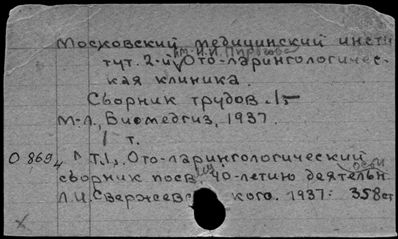 Московский медицинский инсти
тут. 2-й им. Н.И. Пирогова Ото-ларингологичес-
кая клиника.
Сборник трудов. 1-
М-Л., Биомедгиз, 1937.
т.
О 869 Т.1, Ото-ларингологический
сборник посв. 40-летию деятельн
Л.И. Свержевского. 1937. 358ст